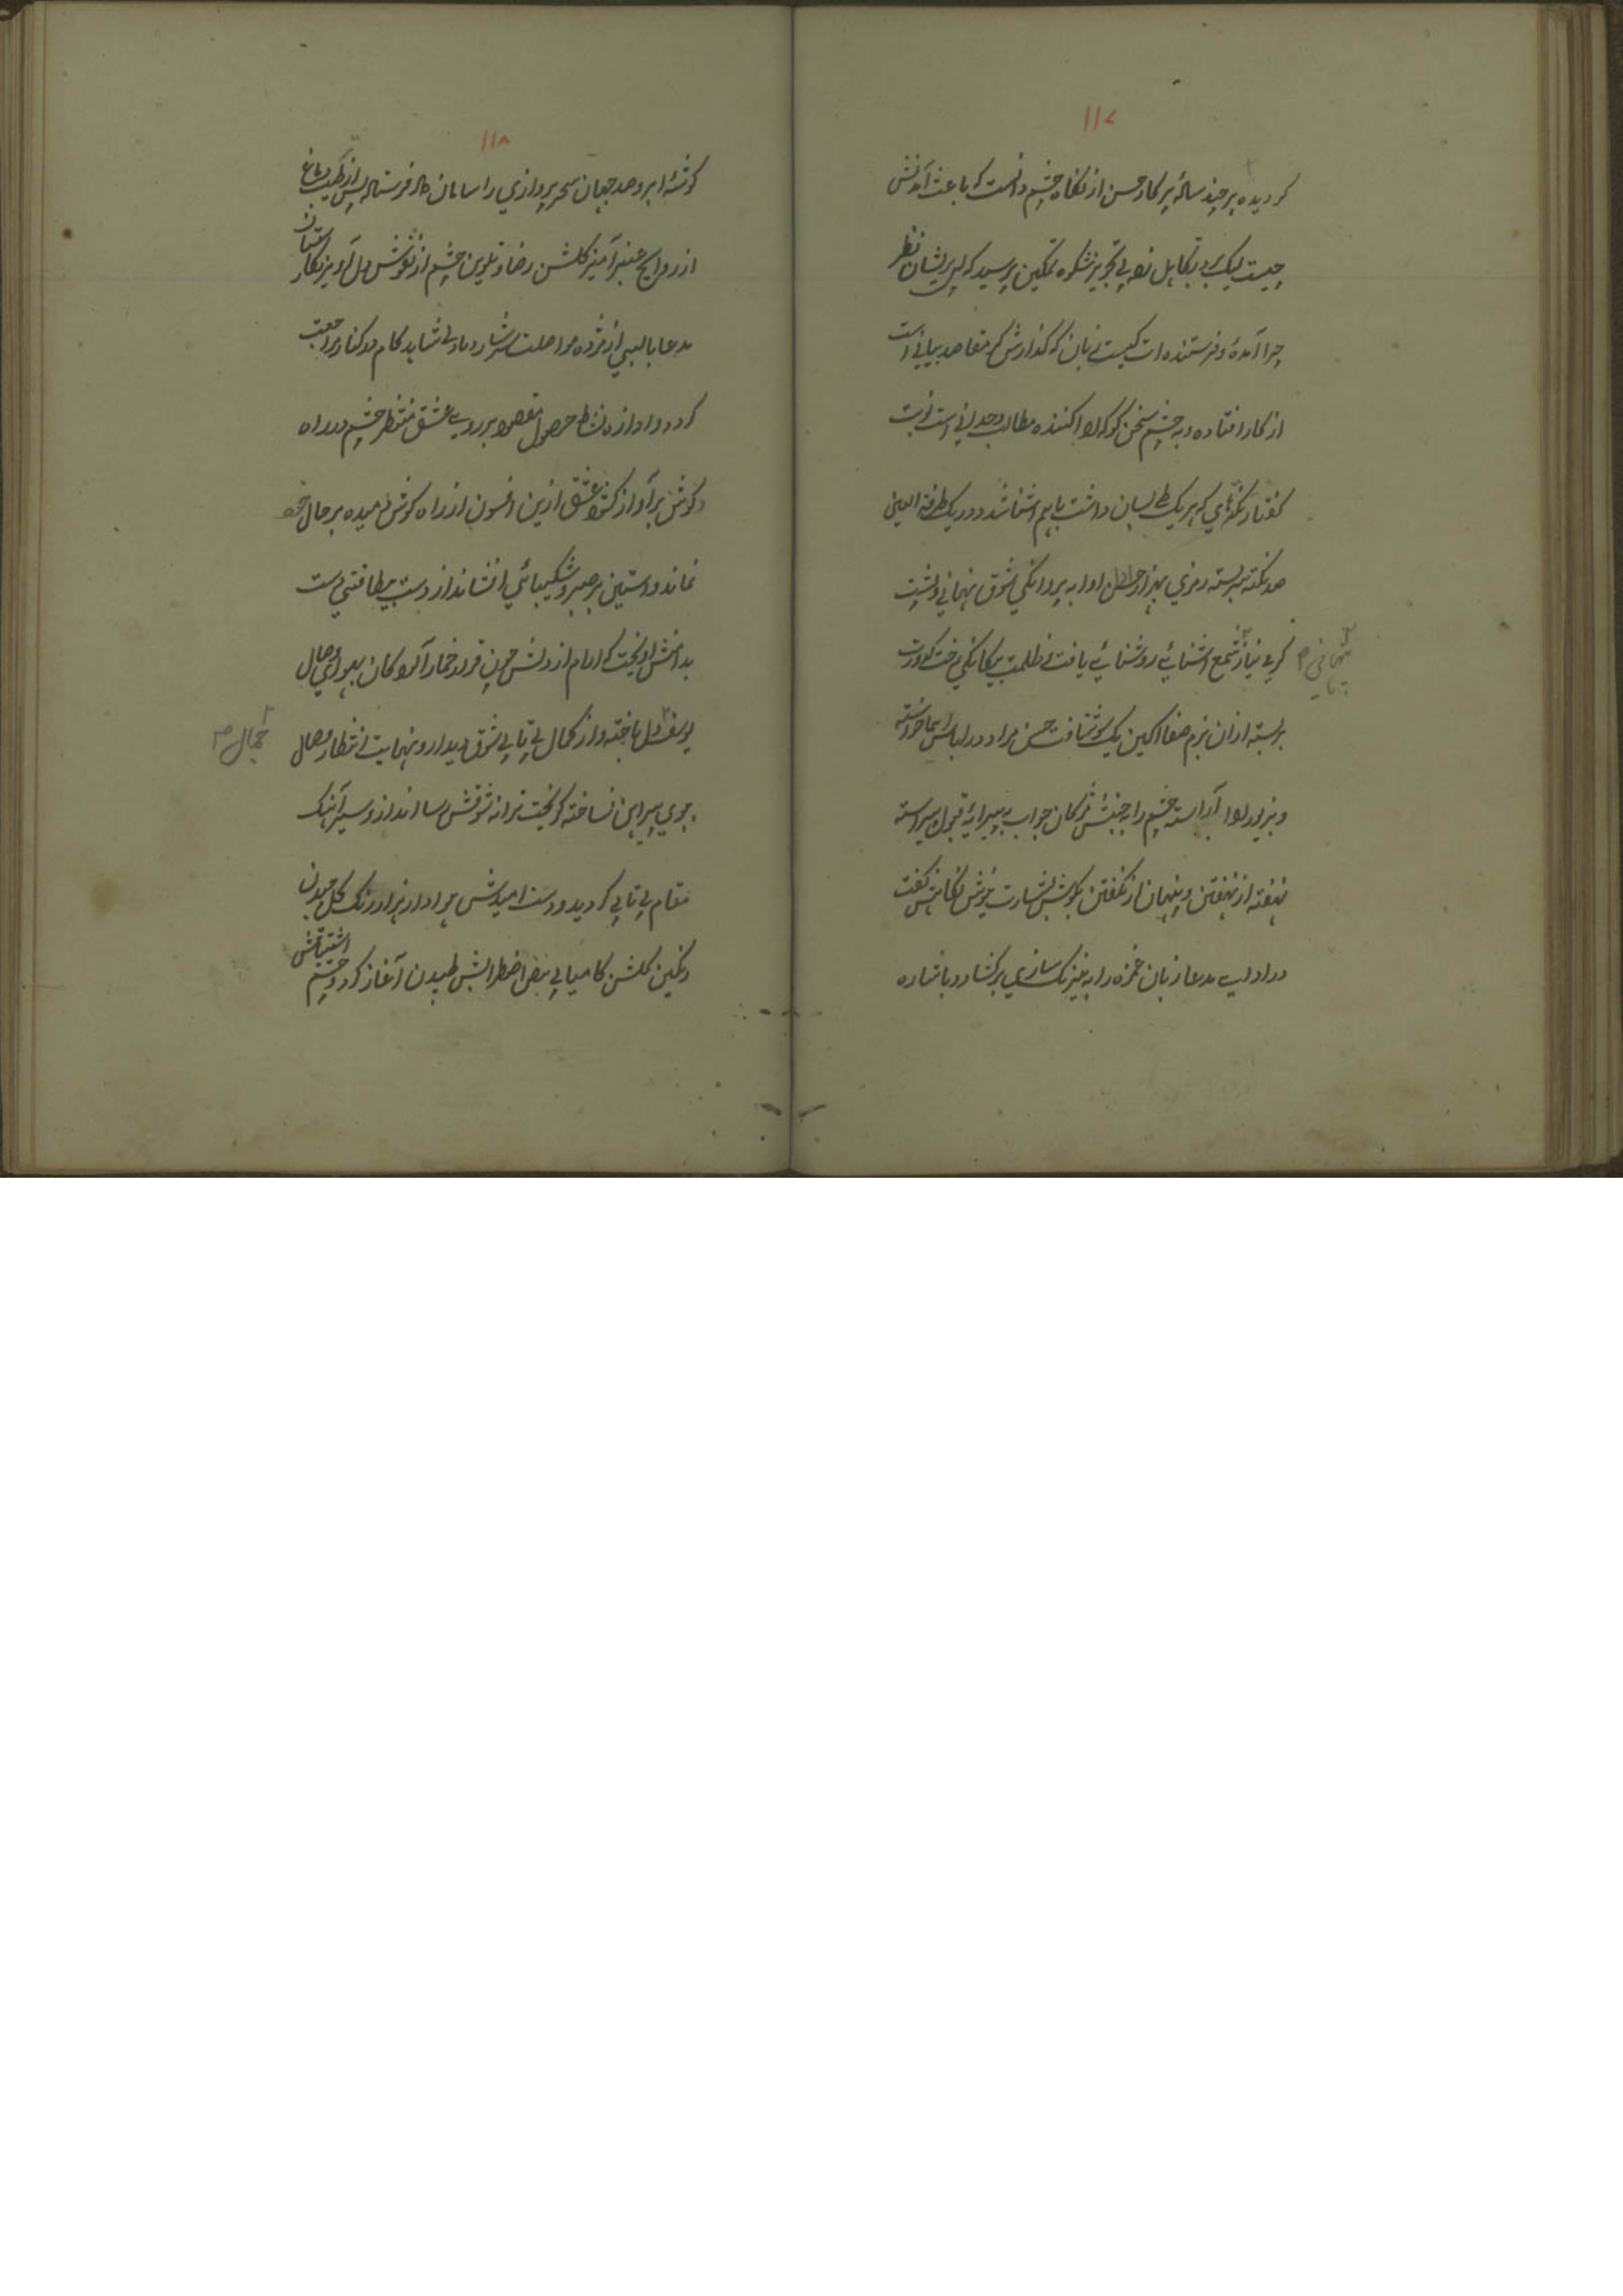 ۱۱۷
گردیده هر چند سالهٔ پرکار حسن از نگاه چشم دانست که باعث آمدنش
چیست لیک بر تجاهل زده بی تجویز شکوه تمکین پرسید که ای پریشان نظر
چرا آمدهٔ و فرستنده ات کیست زبان که گذارش گر مقاصد بیانی است
از کار افتاده و به چشم سخن گو که ادا کننده مطالب وجدانی است نوبت
گفتار نگهای که هر یک لسان داشت باهم آشنا شد و در یک طرفة العین
صد نکته سربسته رمزی بهزاران ادا به پروانگی شوق نهانی
که بی نیاز شمع آشنائی روشنائی یافت ظلمت بیگانگی رخت کدورت
بربسته ازان بزم صفا آگین یک سو شتافت حسن مراد در لباس ایما خواسته
و بزیور ادا آراسته چشم را به جنبش مژگان جواب به پیرایهٔ قبول پیراسته
نهفته از نهفتن و پنهان از گفتن بگوش بشارت نیوش نگاهش گفت
در ادای مدعا زبان غمزه را به نیرنگ سازی برگشاد و باشاره
نهانی ۳
۱۱۸
گوشهٔ ابرو صد جهان سحرپردازی را سامان داد فرستاده پس از طیب دماغ
از روایح عنبرآمیز گلشن رضا و تلوین چشم از نقوش دل آویز نگارستان
مدعا بالبی از مژده مواصلت سرشار و با دلی شاید کام در کنار مراجعت
کرد و آوازه نشاط حصول مقصود بر روی عشق منتظر چشم در راه
و گوش بر آواز عشق ازین افسون از راه گوش دمیده بر حال خود
نماند و آستین بر صبر و شکیبائی افشاند از دست بیطاقتی دست
بدامنش آویخت که آرام از دلش چون خمارآلودگان بهوای وصال
یوسف دل باخته و از کمال بی تابی شوق دیدار و نهایت انتظار وصال
بوی پیراهن نساخته گوی بخت ترانه شوقش رسا انداز و سیر آهنگ
مقام بی تابی گردید و دست امیدش هوادار هزار رنگ گل چیدن
رنگین گلشن کامیابی نبض اضطرابش طپیدن آغاز کرد و چشم اشتیاقش
جمال ۳